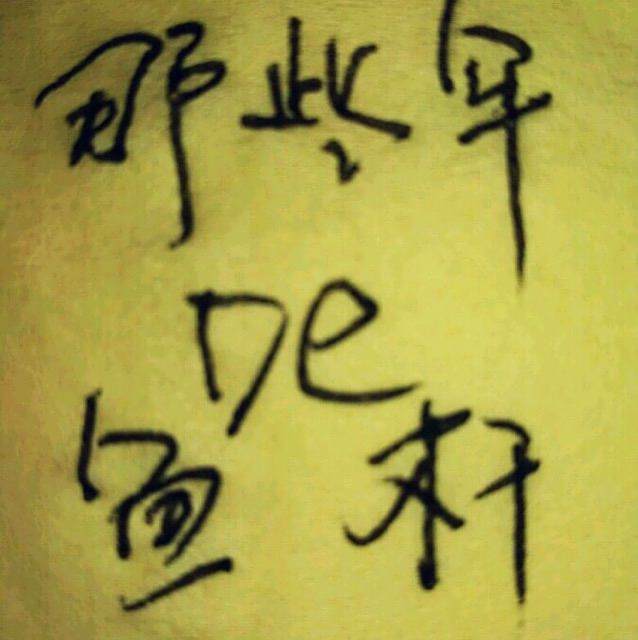 那些年
De
鱼杆